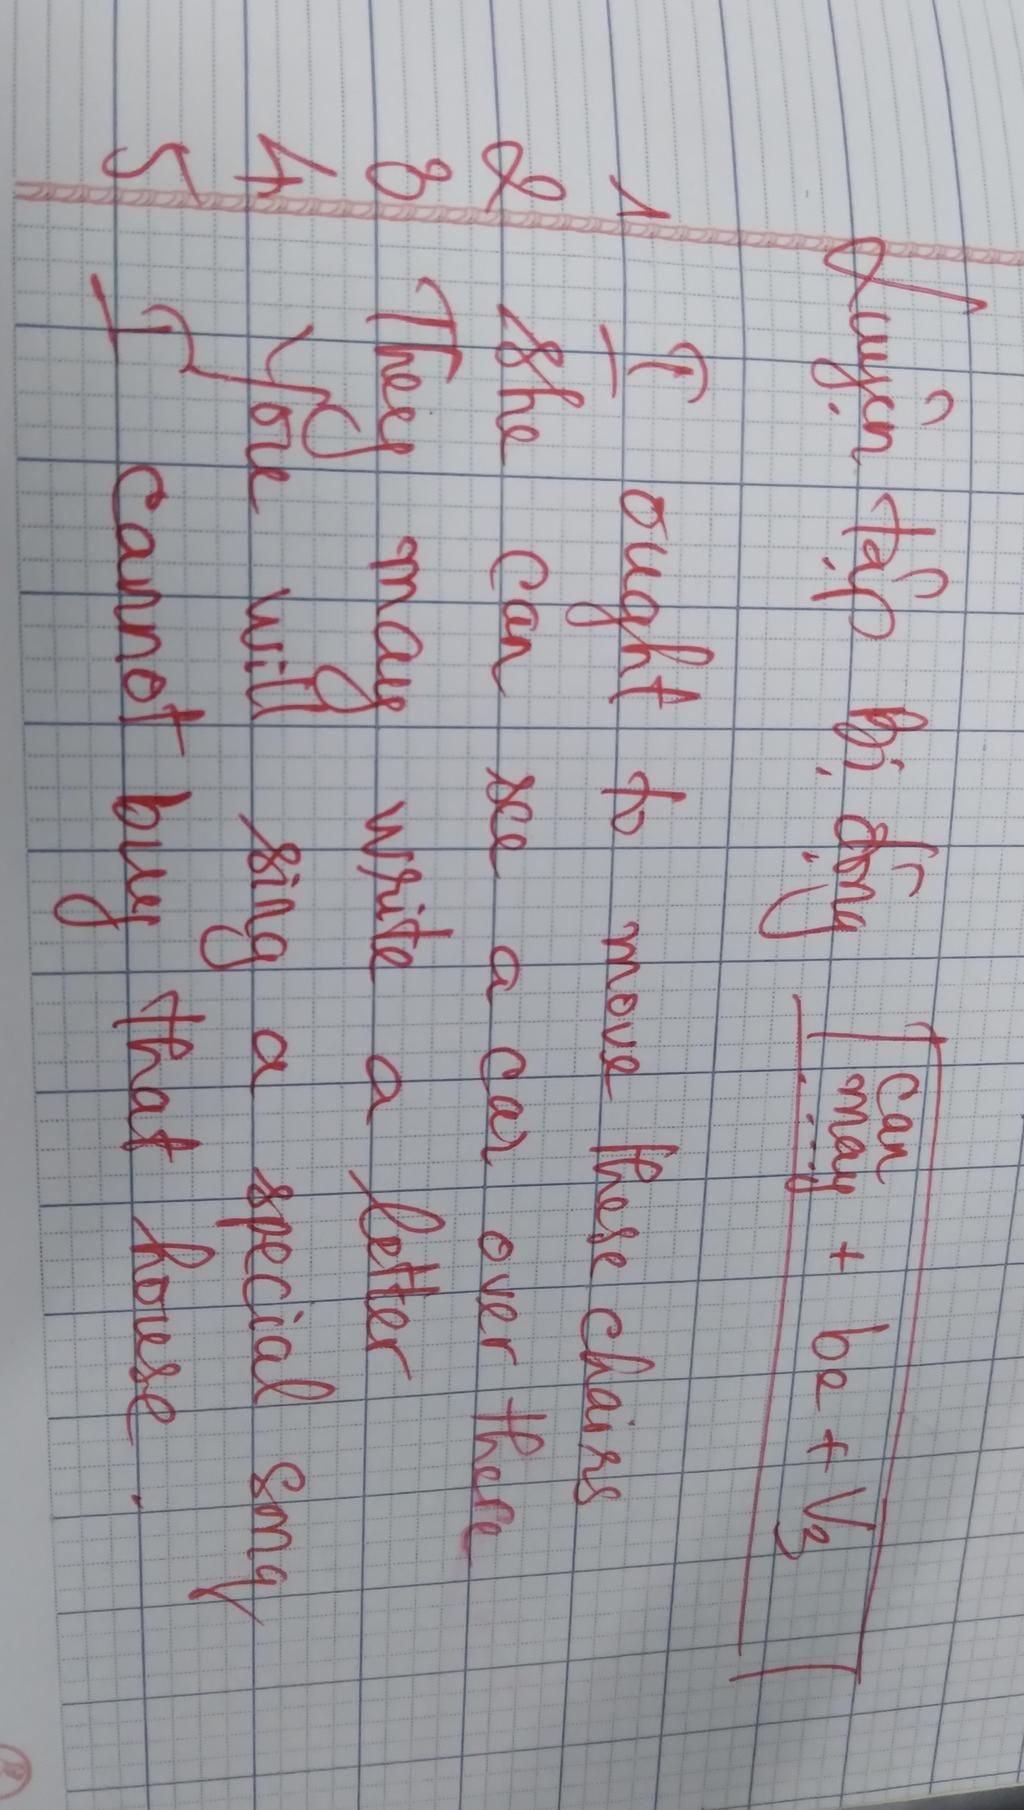 Luyện tập bị động
can
may + be + V3
...
1 I ought to move these chairs
2 She can see a car over there
3 They may write a letter
4 You will sing a special song
5 I cannot buy that house.